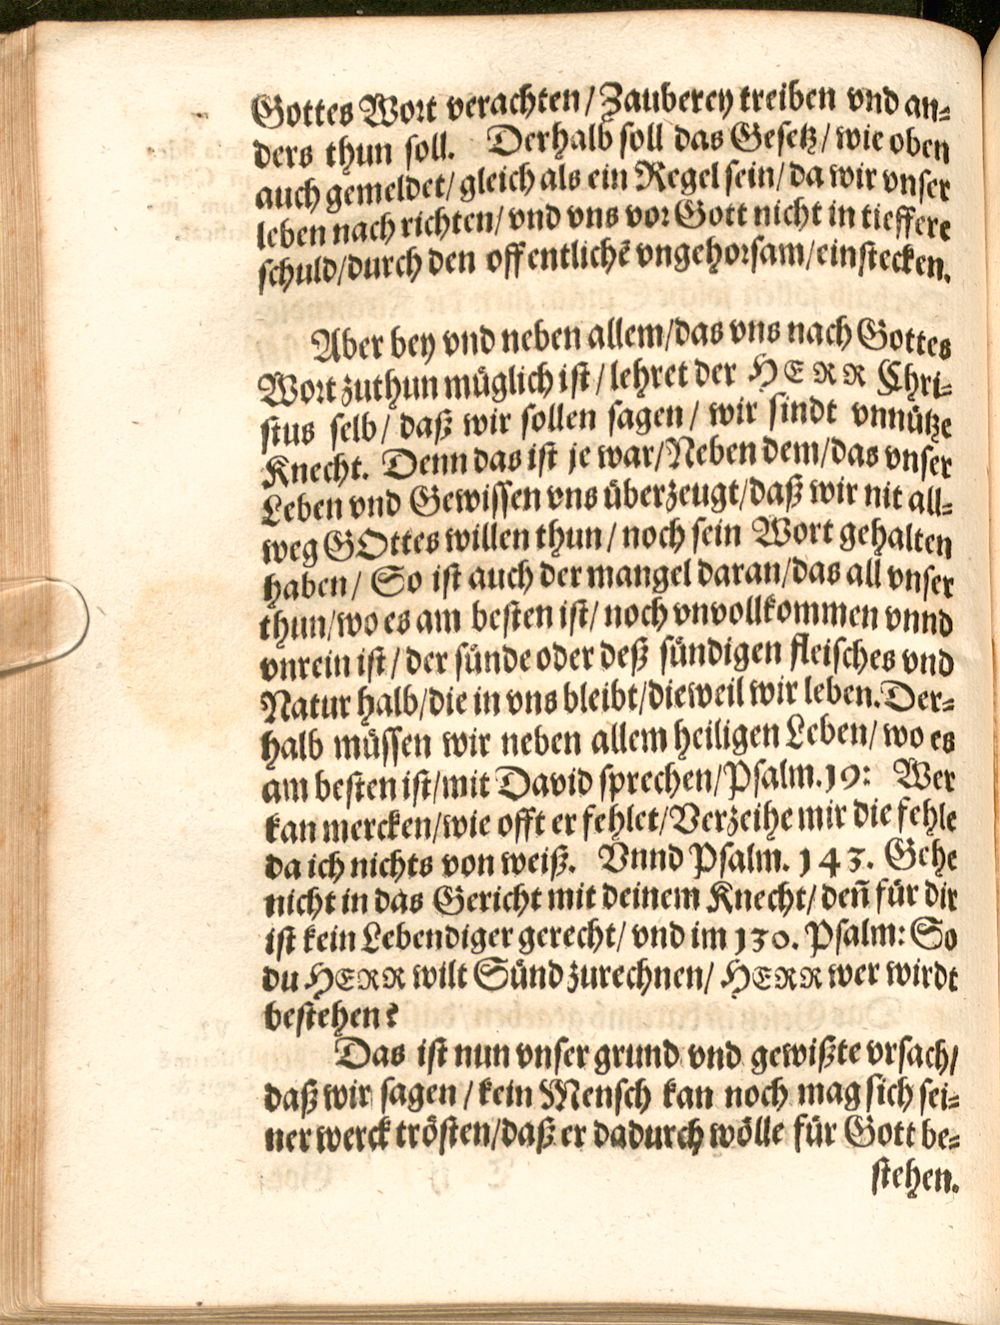 Gottes Wort verachten/ Zauberey treiben vnd an-
ders thun soll. Derhalb soll das Gesetz/ wie oben
auch gemeldet/ gleich als ein Regel sein/ da wir vnser
leben nach richten/ vnd vns vor Gott nicht in tieffere
schuld/ durch den offentlichẽ vngehorsam/ einstecken.
Aber bey vnd neben allem/ das vns nach Gottes
Wort zuthun müglich ist/ lehret der HERR Chri-
stus selb/ daß wir sollen sagen/ wir sindt vnnütze
Knecht. Denn das ist je war/ Neben dem/ das vnser
Leben vnd Gewissen vns überzeugt/ daß wir nit all-
weg GOttes willen thun/ noch sein Wort gehalten
haben/ So ist auch der mangel daran/ das all vnser
thun/ wo es am besten ist/ noch vnvollkommen vnnd
vnrein ist/ der sünde oder deß sündigen fleisches vnd
Natur halb/ die in vns bleibt/ dieweil wir leben. Der-
halb müssen wir neben allem heiligen Leben/ wo es
am besten ist/ mit David sprechen/ Psalm. 19: Wer
kan mercken/ wie offt er fehlet/ Verzeihe mir die fehle
da ich nichts von weiß. Vnnd Psalm. 143. Gehe
nicht in das Gericht mit deinem Knecht/ deñ für dir
ist kein Lebendiger gerecht/ vnd im 130. Psalm: So
du HERR wilt Sünd zurechnen/ HERR wer wirdt
bestehen?
Das ist nun vnser grund vnd gewißte vrsach/
daß wir sagen/ kein Mensch kan noch mag sich sei-
ner werck trösten/ daß er dadurch wölle für Gott be-
stehen.